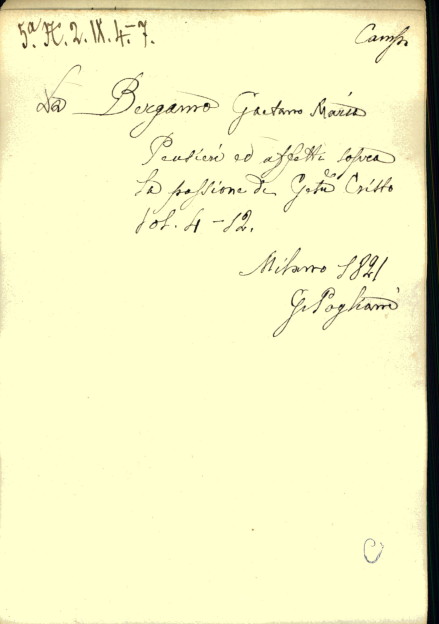 5ª. H. 2. IX. 4-7.
Camp.
Da Bergamo Gaetano Maria
Pensieri ed affetti sopra
la passione di Gesù Cristo
Vol. 4 - 12.
Milano 1821
G. Pogliani
C